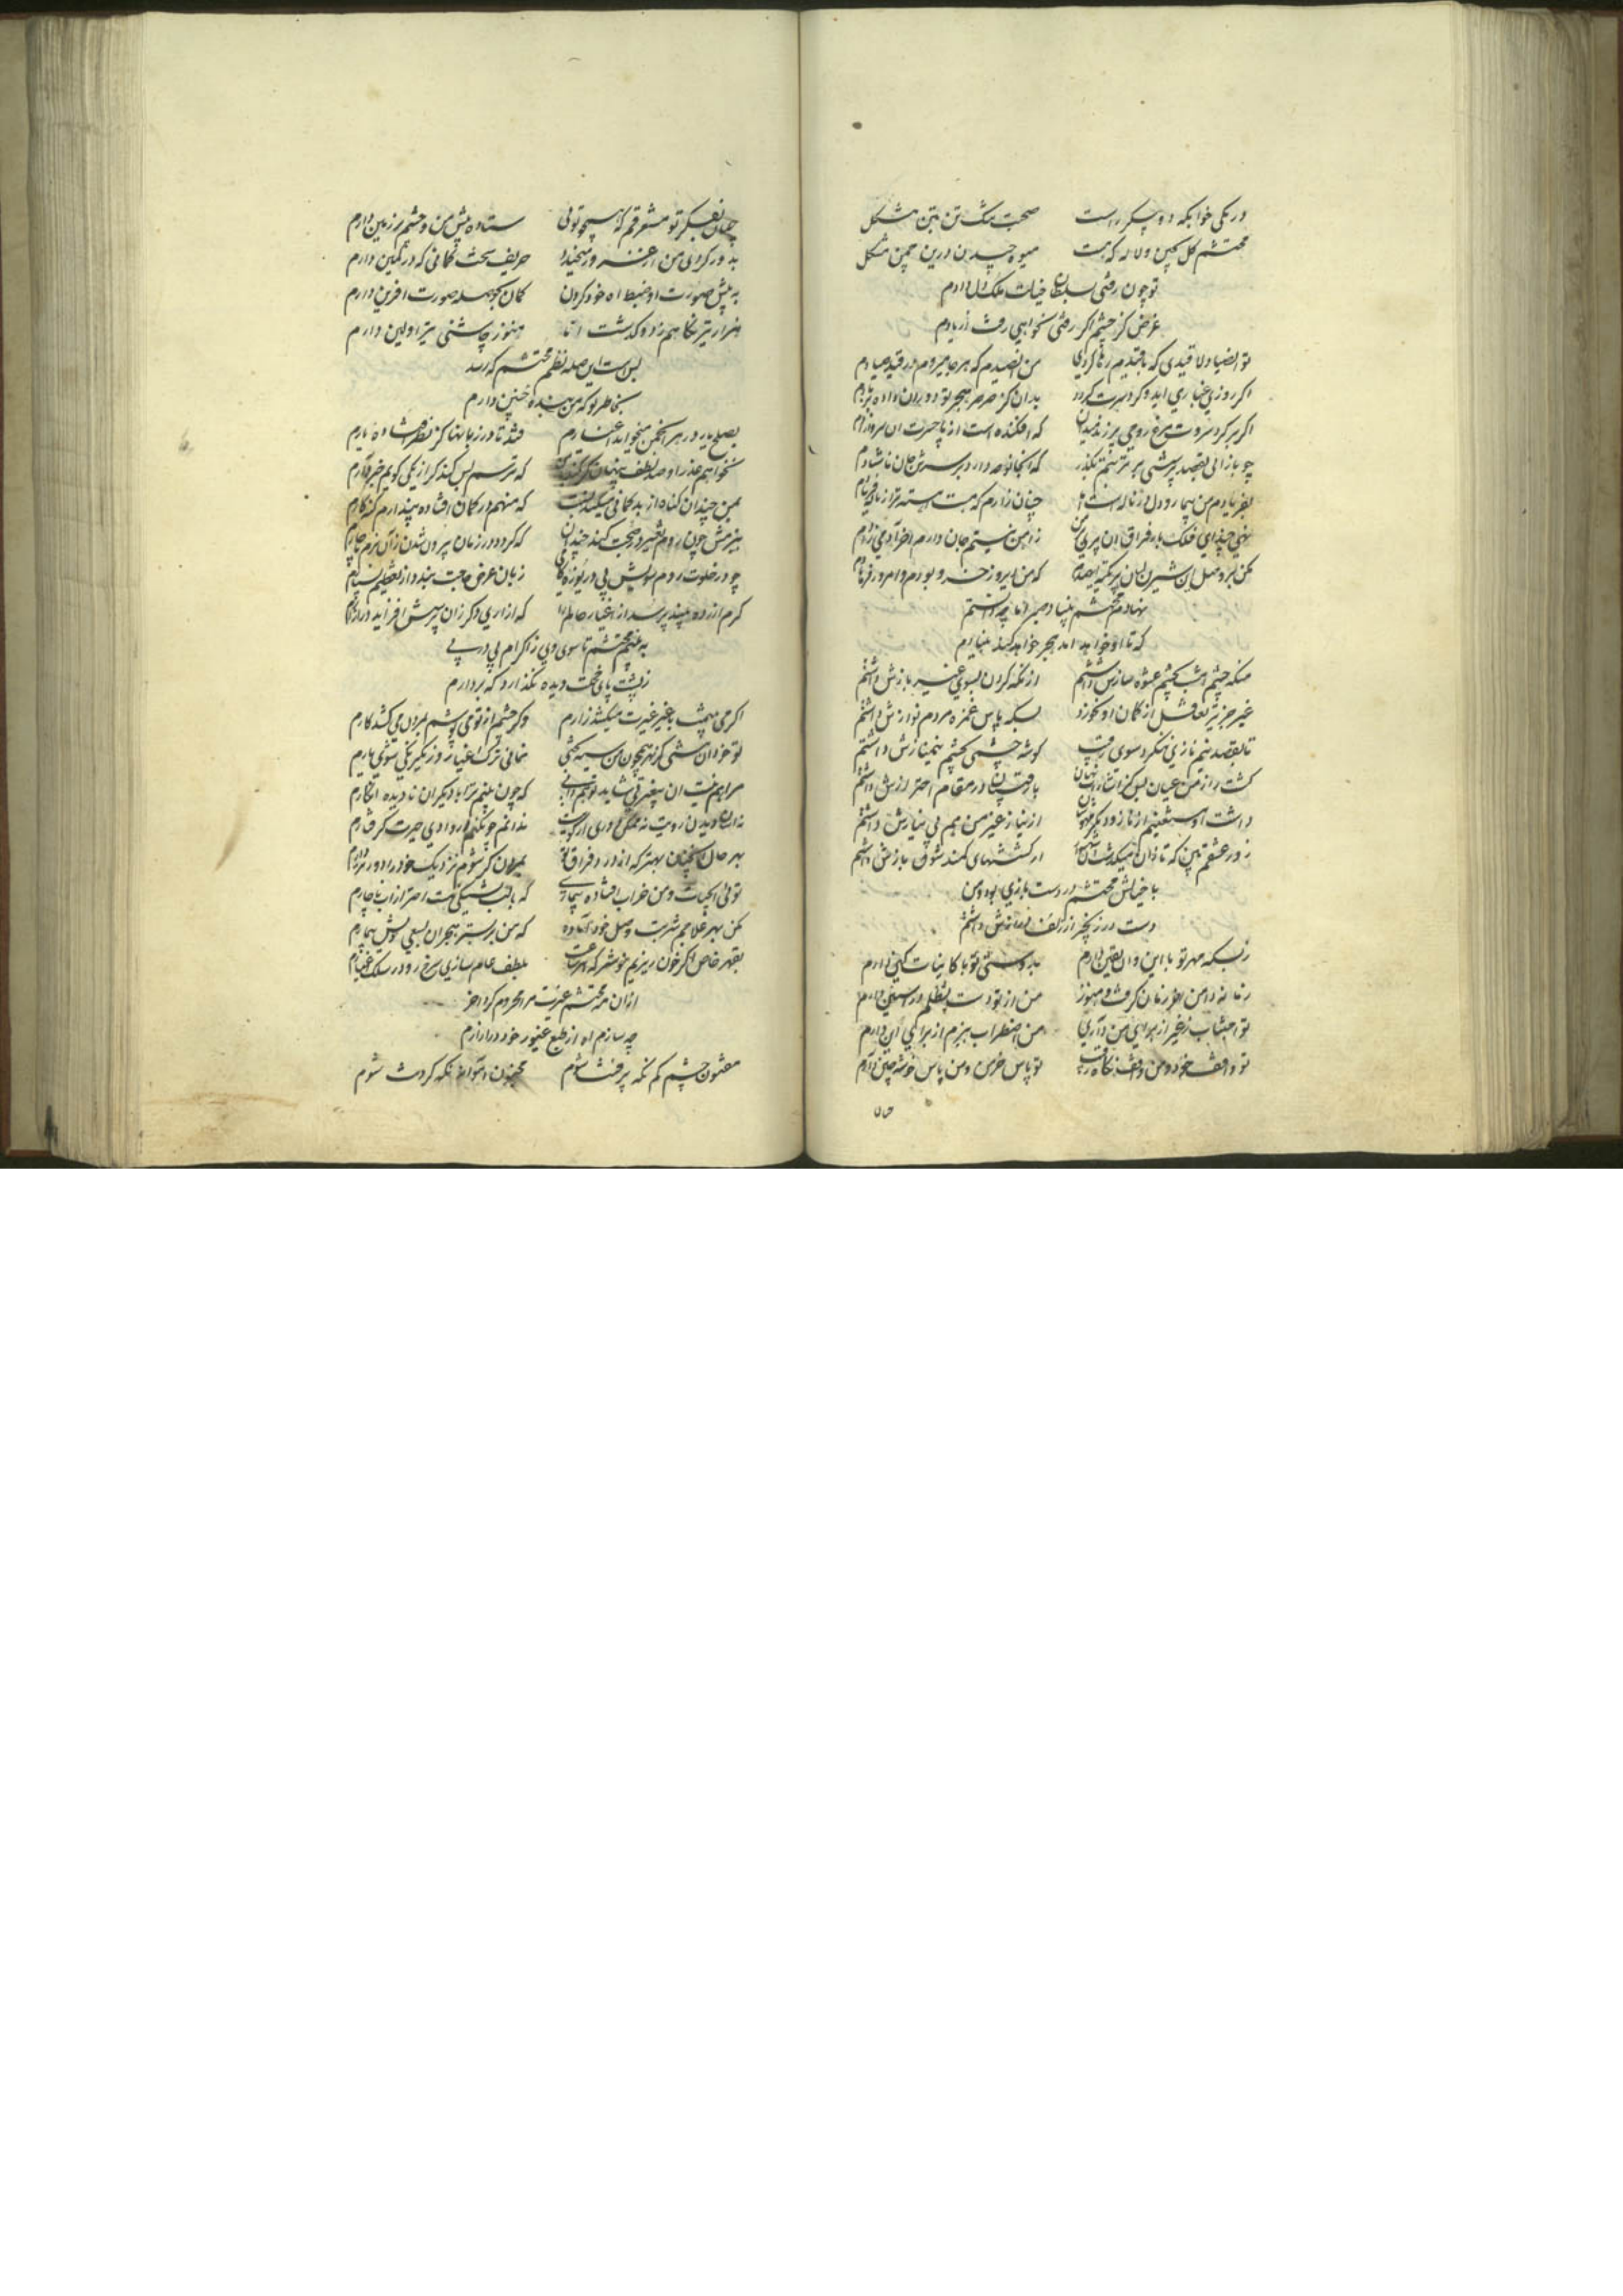 در یکی خوابکه دو پیکر راست صحبت یک تن بتن مشکل
محتشم کل بچین ولاله که هست میوه چیدن درین چمن مشکل
تو چون رفتی بسلطان خیالت ملک دل دادم
غرض کز چشم اکر رفتی نخواهی رفت از یادم
تو انصیاد لا قیدی که ناقیدم رها کردی من انصیدم که هر جا میروم در قید صیادم
اکر روزی غباری اید و کرد سرت کردد بدان کز صرصر هجر تو دوران داده بر بادم
اکر بر کرد سروت مرغ روحی پر زند میدان که افکنده است از پا حسرت ان سرو ازادم
چو باز ائی بقصد پرسشی بر تربتم بکذر که انجا نوحه دارد بر سرش جان ناشادم
بفریادم من بیمار و دل از ناله است اما چنان زارم که هست اهسته تر از ناله فریادم
منه چندای فلک بار فراق ان پری بر من ز اهن نیستم جان دارم اخر ادمی زادم
مکن بر وصل این شیرین لبان پر تکیه ای همدم که من دیروز خسرو بودم و امروز فرهادم
نهادم محتشم بنیاد صبر اما چه دانستم
که تا او خواهد امد هجر خواهد کند بنیادم
منکه چشم امشب بچشم عشوه سازش داشتم از نکه کردن بسوی غیر بازش داشتم
غیر جز تیر تغافل از کمان او نخورد بسکه پاس غمزه مردم نوازش داشتم
تا بقصد نیم نازی ننکرد سوی رقیب کوشه چشمی بچشم نیم نازش داشتم
کشت راز من عیان بس کز اشارات نهان با رقیبان در مقام احترازش داشتم
داشت او مستغنیم از ناز و دیکر مهوشان از نیاز غیر من هم بی نیازش داشتم
زور عشقم بین که تازان میکذشت ان شهسوار از کششهای کمند شوق بازش داشتم
با خیالش محتشم در دست بازی بود و من
دست در زنجیر از زلف درازش داشتم
ز بسکه مهر تو با این و ان یقین دارم بدوستی تو با کاینات کین دارم
رقابه دامن اخر زمان کرفت و هنوز من از تو دست بظلم در استین دارم
تو اجتناب ز غیر از برای من داری من اضطراب ببزم از برای این دارم
تو واقف خود و من واقف نکاه رقیب تو پاس خرمن و من پاس خوشه چین دارم
چنان بفکر تو مستغرقم که همچو توئی ستاده پیش من و چشم بر زمین دارم
به پیش صورت او ضبط اه خود کردن کمان بحوصله صورت افرین دارم
هزار تیر نکاهم زد و کذشت اما هنوز چاشنی تیر اولین دارم
بس است این صله نظم محتشم که رسد
بخاطر تو که من بنده چنین دارم
بصلح یار در هر انجمن میخواند اغیارم فتد تا در زبانها کز نظر افتاده یارم
نخواهم عذر او صد لطف پنهان که ترسم بس کند کر از یکی کویم خبر دارم
بمن چندان کناه از بد کمانی میکند نسبت که منهم در کمان افتاده پندارم کنه کارم
ببزمش چون روم تغییر در صحبت کند چندان که کردد در زمان بیرون شدن زان بزم ناچارم
چو در خلوت روم سویش پی دریوزه کامی زبان عرض حاجت بندد از تعظیم بسیارم
کرم ازرده بیند پرسد از اغیار حالم را که از اری دکر زان پرسش افزاید در ازارم
به بینم محتشم تا سوی وی زاکرام پی در پی
ز پشت پای خجلت دیده نکذارد که بردارم
اکر می بینمت با غیر غیرت میکشد زارم وکر چشم از تو می پوشم بمردن می کشد کارم
تو خود ان نیستی کز بهر همچون من سیه بختی نمائی ترک اغیار و ز یکرنکی شوی یارم
مرا هم نیست ان بیغیرتی شاید تو هم دانی که چون بینم ترا با دیکران نادیده انکارم
نه اسان دیدن رویت نه ممکن دوری از کویت ندانم چو نکنم در وادی حیرت کرفتارم
بهر حال انچنان بهتر که از درد فراق تو بمردن کر شوم نزدیک خود را دور تر دارم
توئی ابحیات و من خراب افتاده بیماری که با لب تشنکی هست احتراز از اب ناچارم
مکن بهر علاجم شربت وصل خود اماده که من بر بستر هجران بسعی خویش بیمارم
بقهر خاص اکر خون ریزیم خوشتر که هر ساعت بلطف عام سازی سرخ رو در سلک اغیارم
ازان مه محتشم غیرت مرا محروم کرد اخر
چه سازم اه از طبع غیور خود در ازارم
مفتون چشم کم نکه پر فنت شوم مجنون اهوانه نکه کردنت شوم